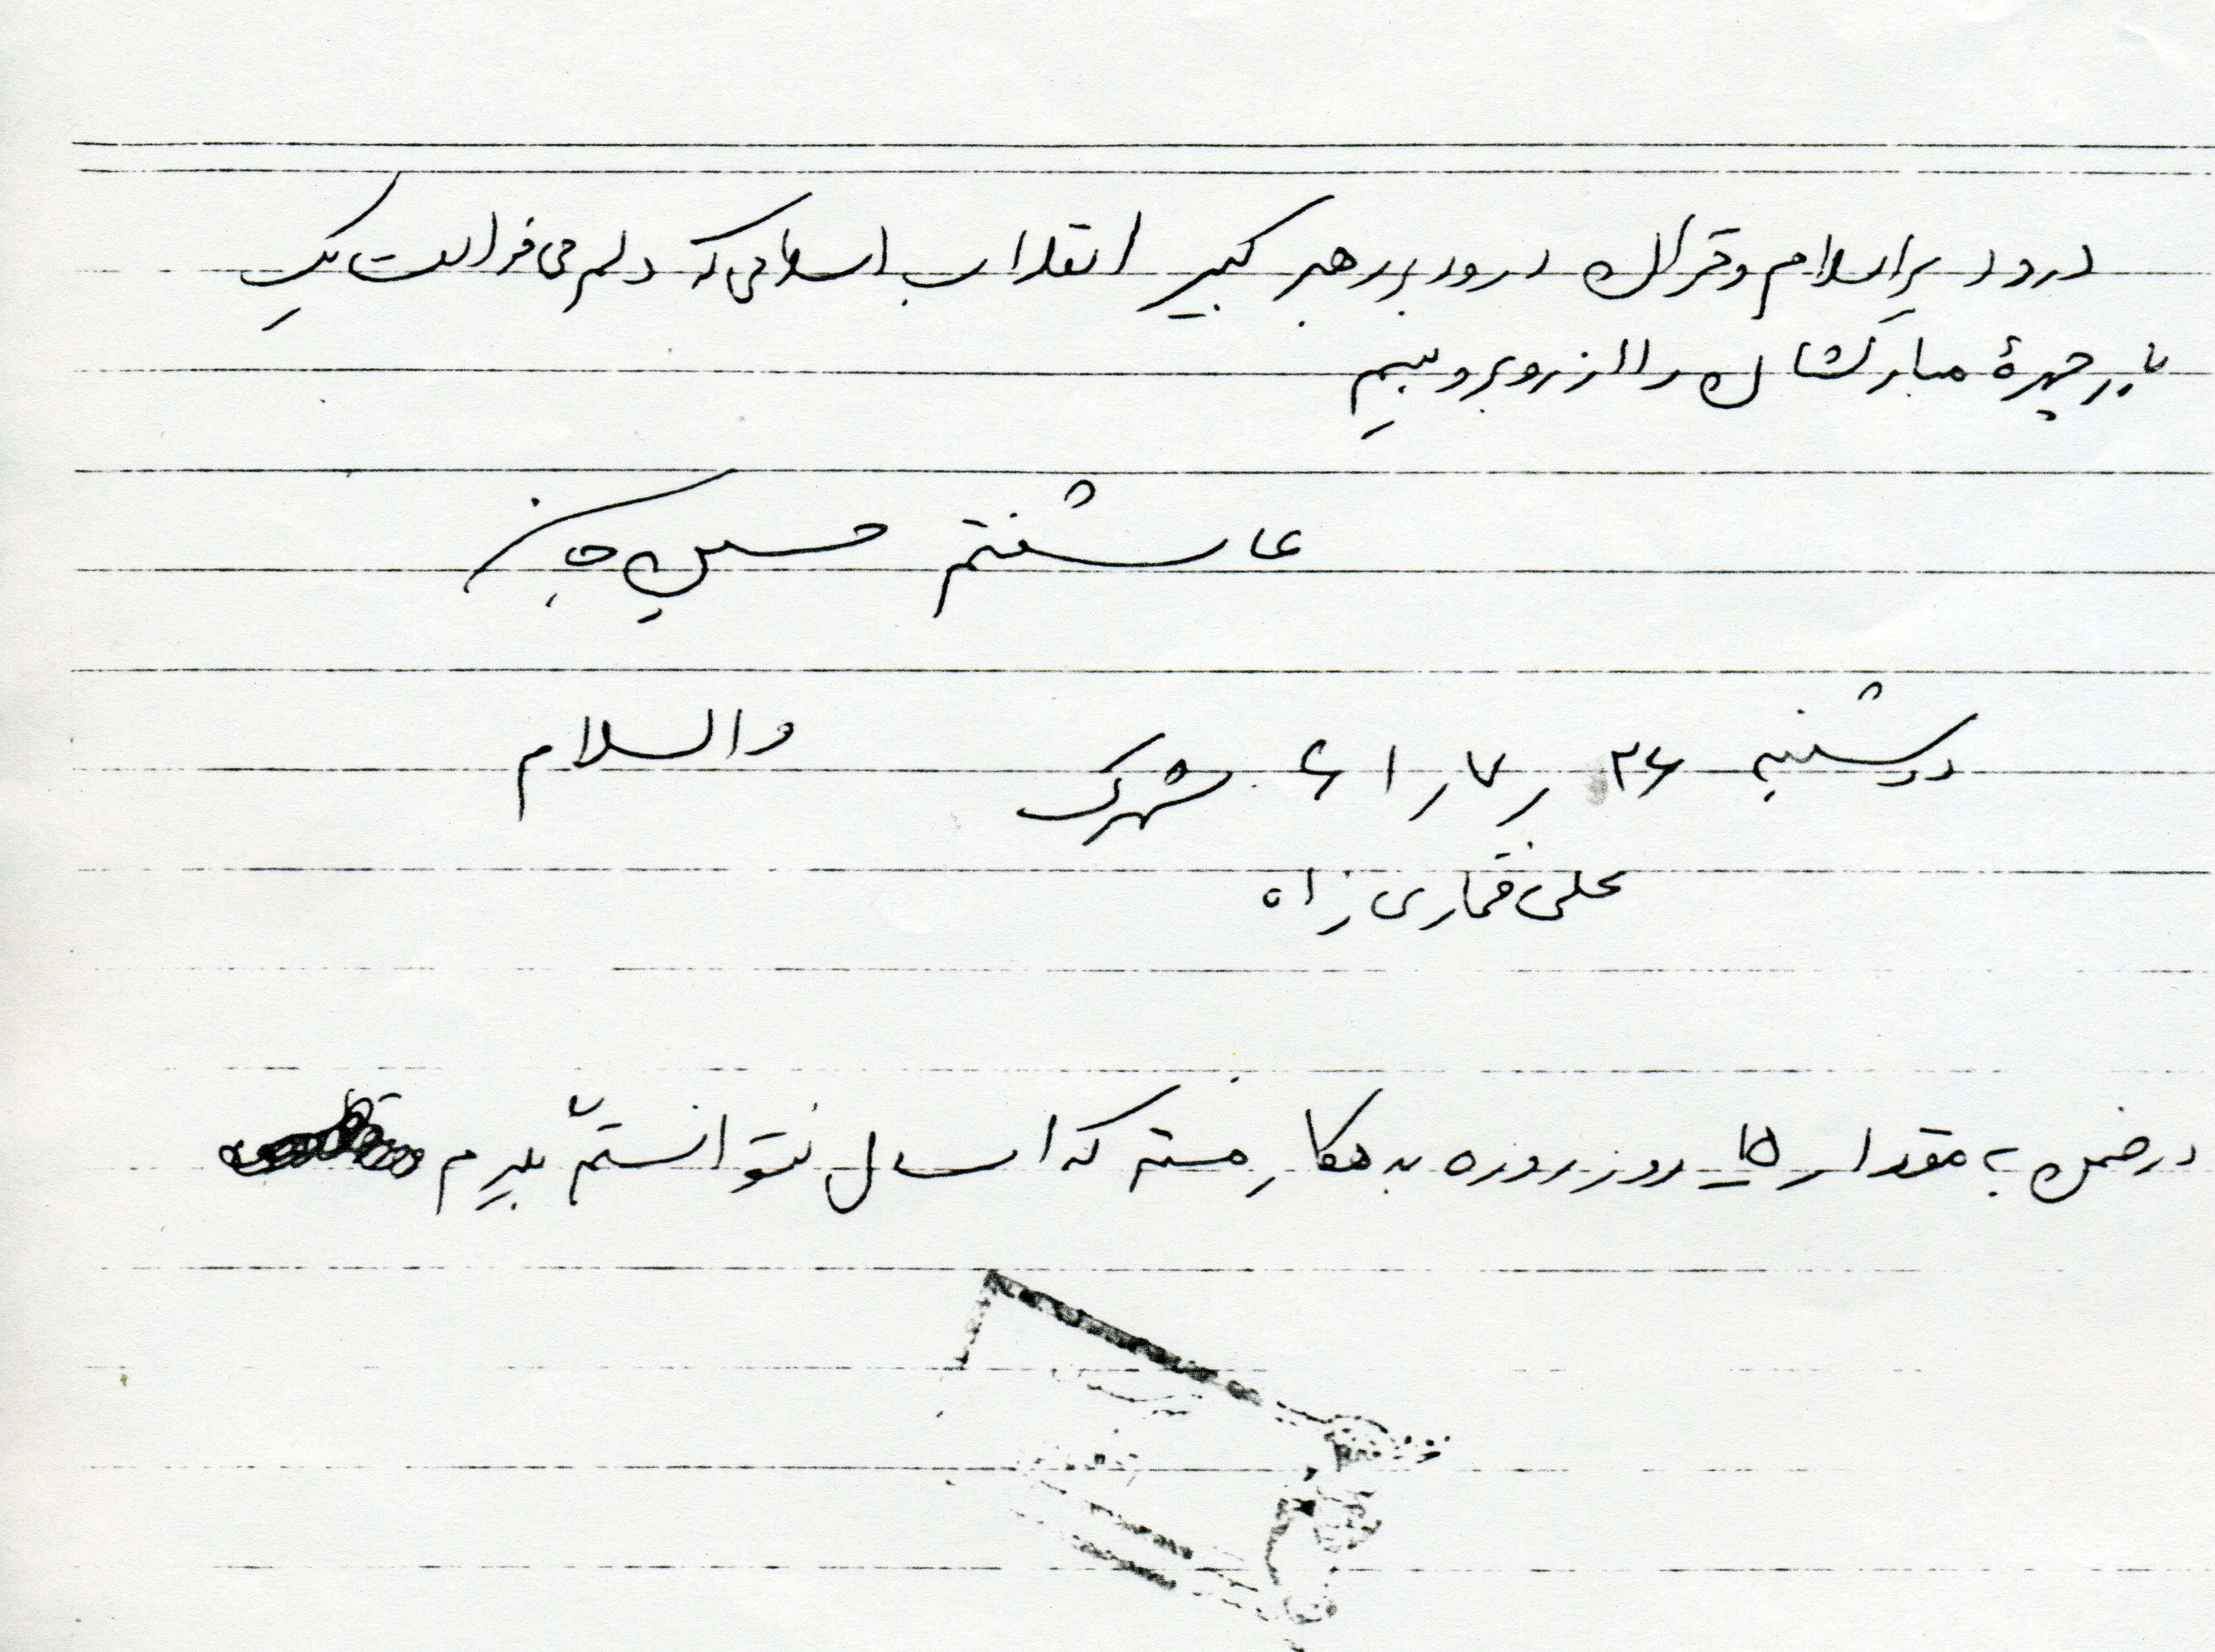 درود بر اسلام و قرآن درود بر رهبر کبیر انقلاب اسلامی که دلم می خواست یک
بار چهرهٔ مبارکشان را از روبرو ببینم
عاشقتم حسین جان
دوشنبه ۲۶ ر ۷ ر ۶۱ شهرک والسلام
علی قماری زاه
در ضمن به مقدار ۱۵ روز روزه بدهکار هستم که امسال نتوانستم بگیرم